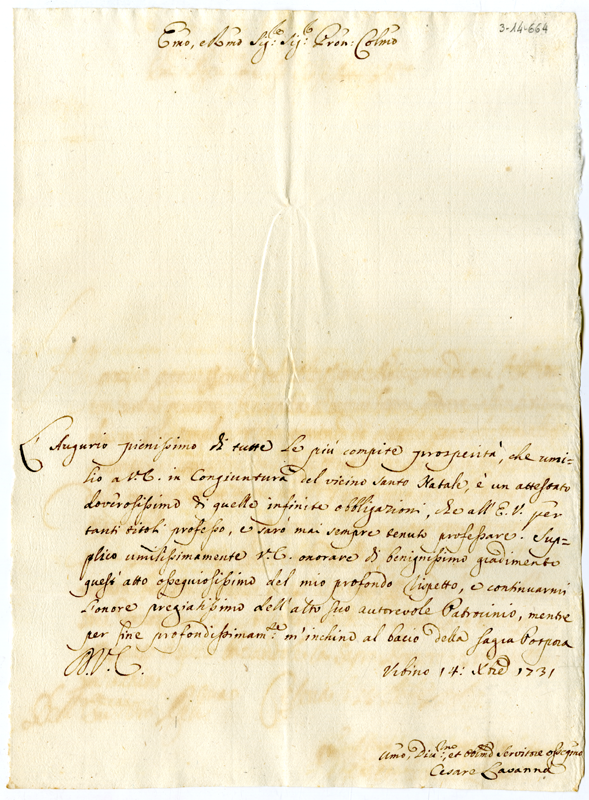 3-14-664
Emo, e Rmo Sig.r Sig.r Pron: Colmo
L'Augurio pienissimo di tutte le più compite prosperità, che umi=
lio a V.E. in Congiuntura del vicino Santo Natale, è un attestato
doverosissimo di quelle infinite obbligazioni, che all'E.V. per
tanti titoli professo, e sarò mai sempre tenuto professare. Sup=
plico umilissimamente V.E. onorare di benignissimo gradimento
quest'atto ossequiosissimo del mio profondo rispetto, e continuarmi
l'onore pregiatissimo dell'alto suo autorevole Patrocinio, mentre
per fine profondissimam.te m'inchino al bacio della Sagra Porpora
D.V.E.
Urbino 14: Xbre 1731
Umo, Divmo, et Obbmo Servitore Osseqmo
Cesare Lavanna